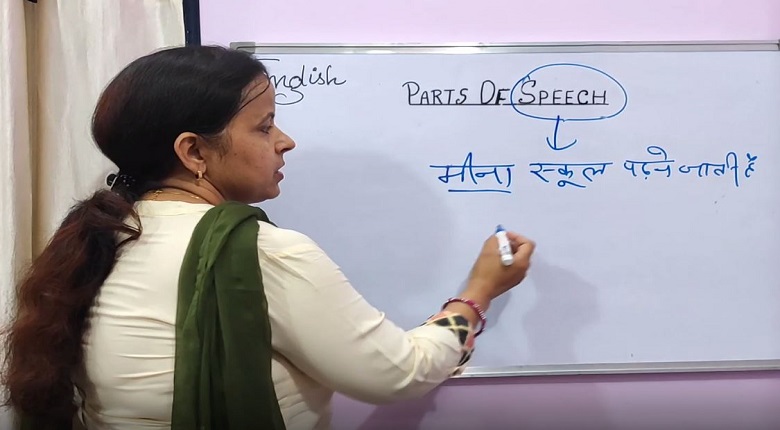 English
PARTS OF SPEECH
मीना स्कूल पढ़ने जाती है